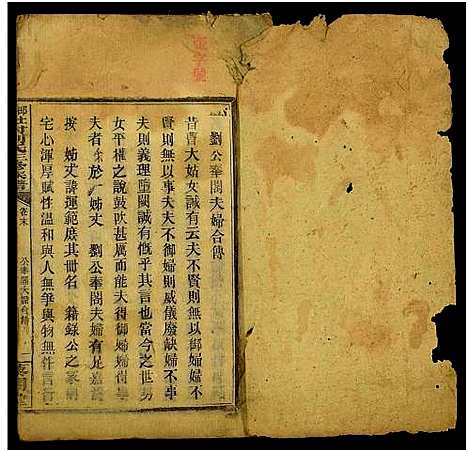 劉公奉閣夫婦合傳
昔曹大姑女誡有云夫不賢則無以御婦婦不
賢則無以事夫夫不御婦則威儀廢缺婦不事
夫則義理墮闕誠有慨乎其言也當今之世男
女平權之說鼓吹甚厲而能夫得御婦婦得事
夫者 於 姊丈 劉公奉閣夫婦有足嘉
按 姊丈諱運範庶其冊名 籍錄公之
宅心渾厚賦性溫和與人無爭與物無忤言
三修
卷末
公奉閣夫婦合傳